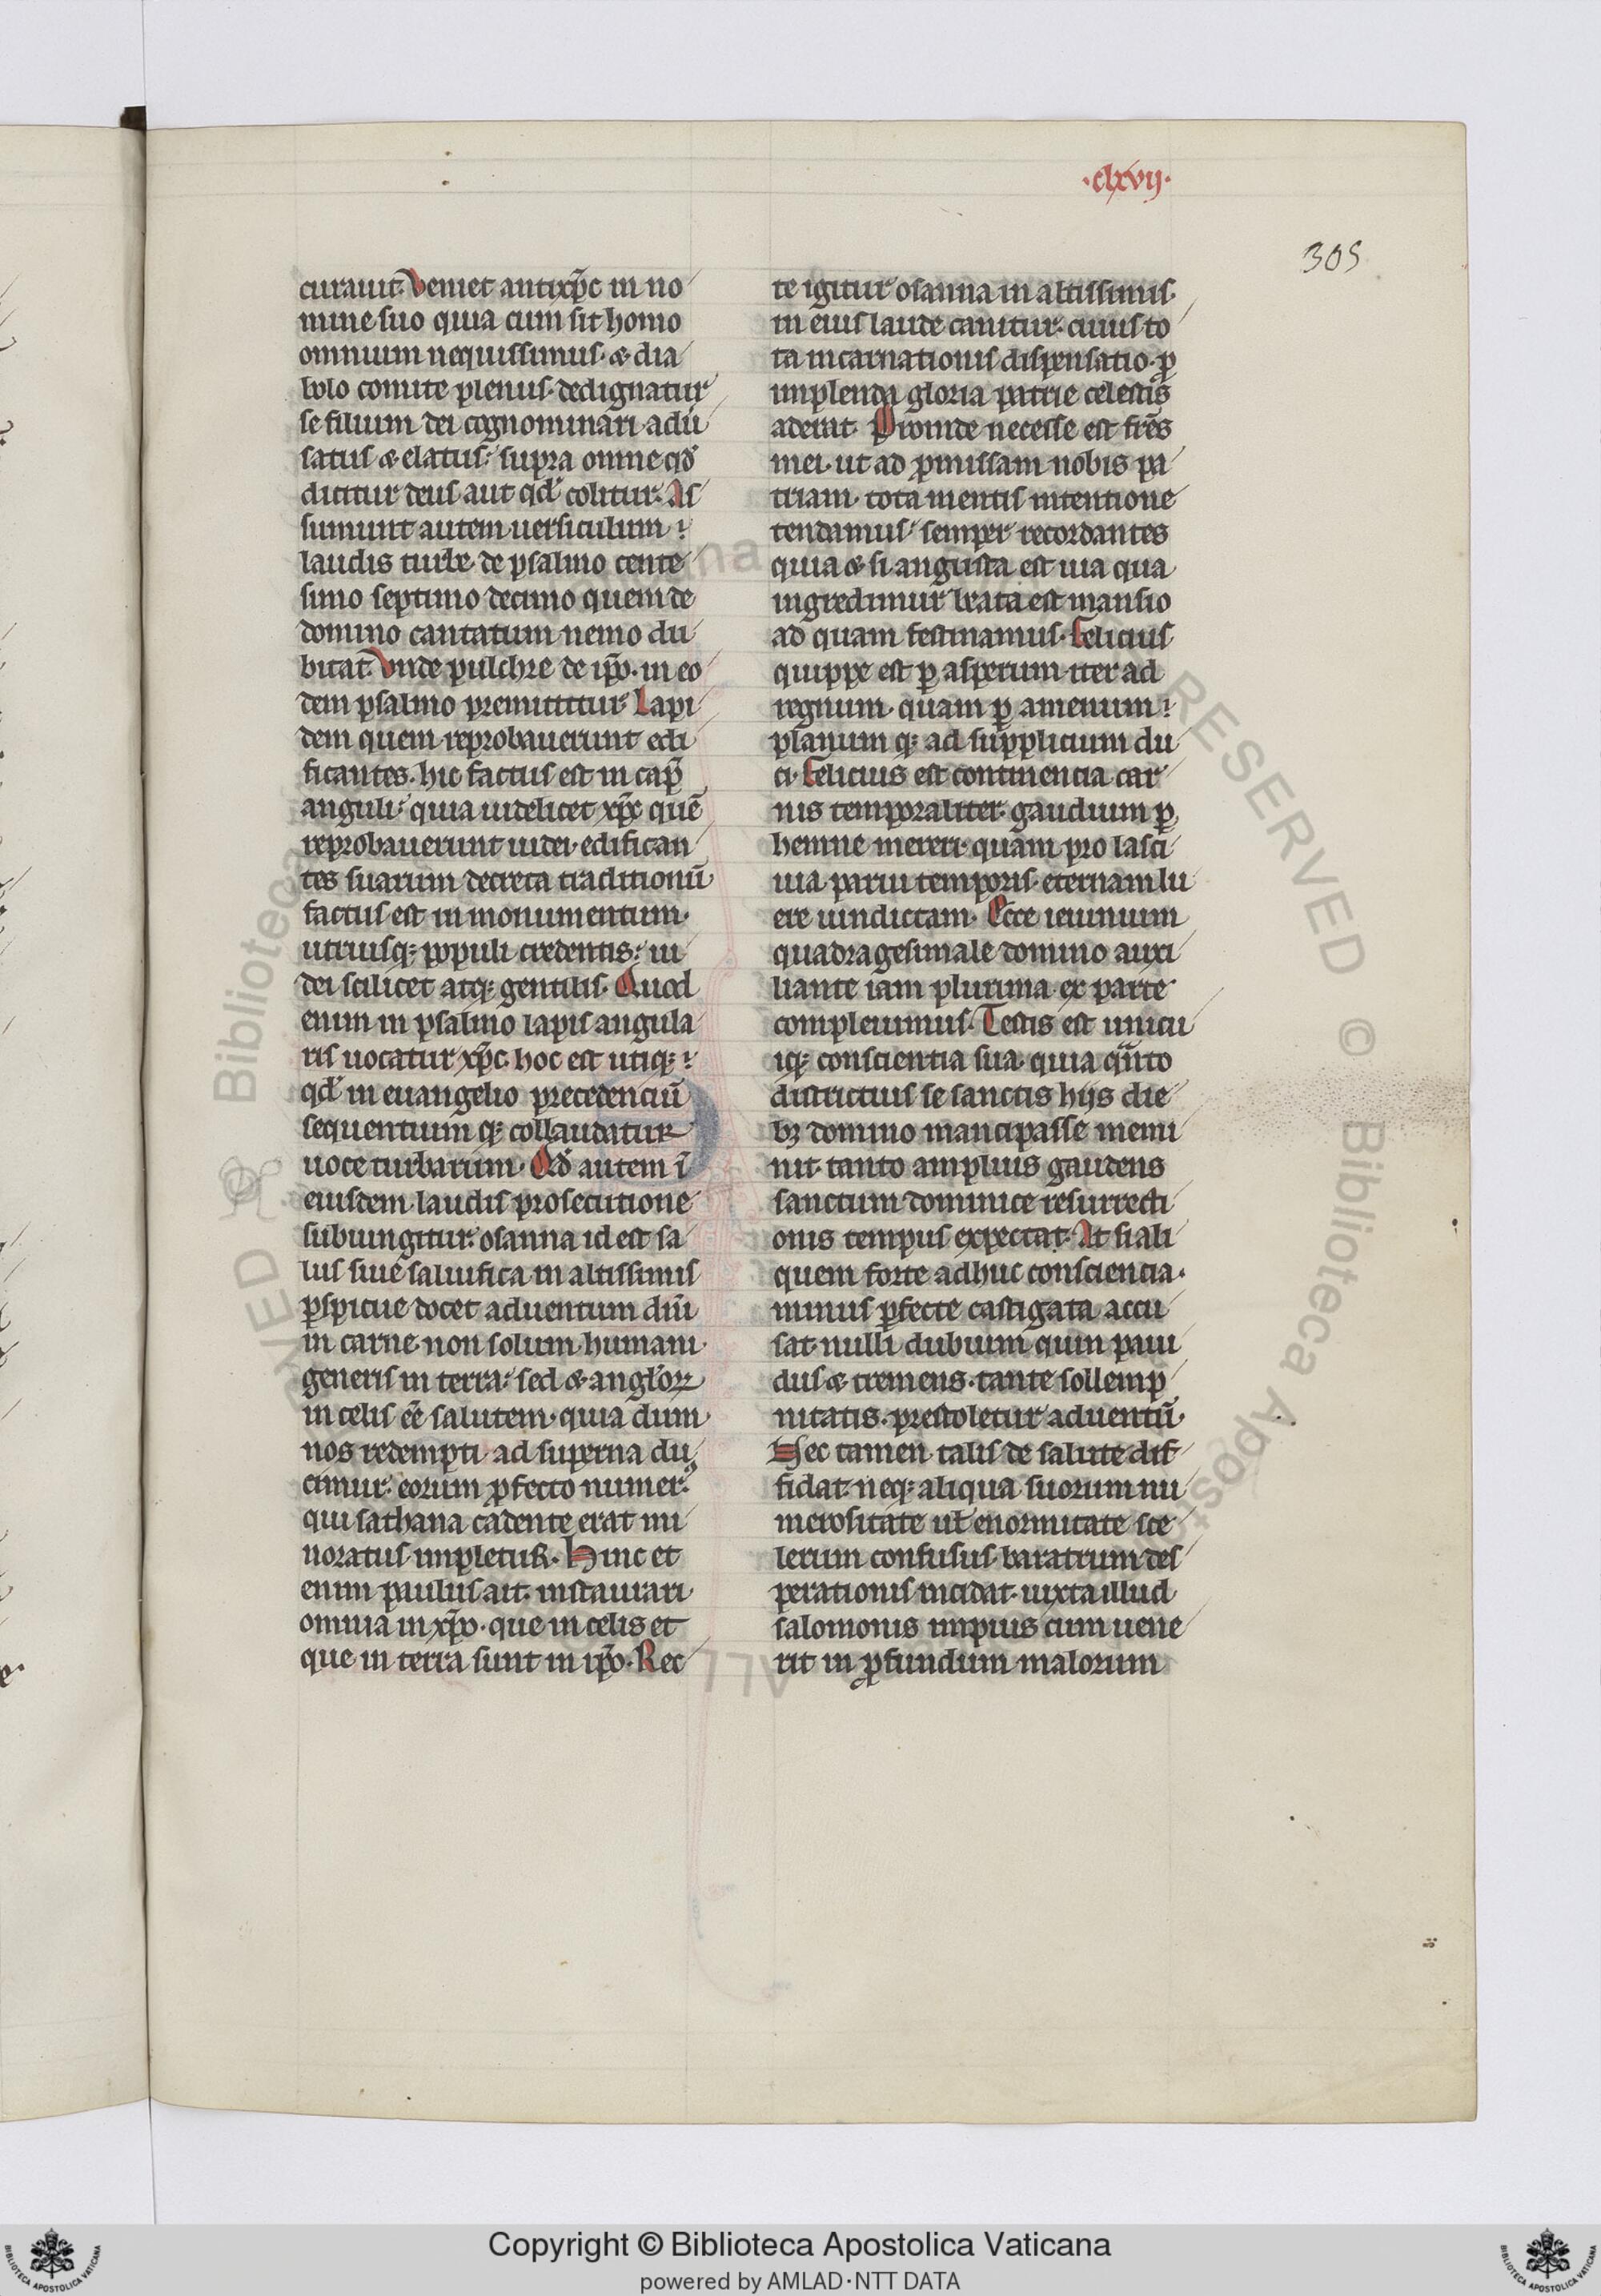 ·clxvij·
305
curauit. Veniet antixp̄c in no
mine suo quia cum sit homo
omnium nequissimus· & dia
bolo comite plenus· dedignatur
se filium dei cognominari· adū
satus & elatus· supra omne qđ
dicitur deus aut qđ colitur. As
sumunt autem uersiculum
laudis turbe· de psalmo cente
simo septimo decimo quem de
domino cantatum nemo du
bitat. Vnde pulchre de ip̄o· in eo
dem psalmo premittitur Lapi
dem quem reprobauerunt edi
ficantes. hic factus est in cap̄
anguli· quia uidelicet xp̄x quē
reprobauerunt iudei· edifican
tes suarum decreta traditionū
factus est in monumentum·
utriusq; populi credentis· iu
dei scilicet atq; gentilis. Quod
enim in psalmo lapis angula
ris uocatur xp̄c. hoc est utiq;
qđ in euangelio precedenciū
sequentium q; collaudatur
uoce turbarum. Qđ autem ī
eiusdem laudis prosecutione
subiungitur· osanna id est sa
lus siue saluifica in altissimis
ꝑspicue docet aduentum dn̄i
in carne· non solum· humani
generis in terra· sed & angl'oꝝ
in celis eē salutem· quia dum
nos redempti· ad superna du
cimur· eorum ꝓfecto numerꝰ
qui sathana cadente erat mi
noratus impletur. Hinc et
enim paulus ait. instaurari
omnia in xp̄o· que in celis et
que in terra sunt in ip̄o· Rec
te igitur osanna in altissimis·
in eius laude canitur· cuius to
ta incarnationis dispensatio· ꝓ
implenda gloria patrie celestis
aderat Proinde necesse est fr̄es
mei· ut ad ꝓmissam nobis pa
triam· tota mentis intentione
tendamus· semper recordantes
quia & si angusta est uia qua
ingredimur beata est mansio
ad quam festinamus· Felicius
quippe est ꝑ asperum iter ad
regnum· quam ꝑ amenum
planum q; ad supplicium du
ci· Felicius est continencia car
nis temporaliter· gaudium ꝑ
henne mereri· quam pro lasci
uia parui temporis· eternam lu
ere uindictam· Ecce ieiunium
quadragesimale domino auxi
liante iam plurima ex parte
compleuimus. Testis est unicu
iq; conscientia sua· quia qn̄to
districtius se sanctis hijs die
bꝫ domino mancipasse memi
nit· tanto amplius gaudens
sanctum dominice resurrecti
onis tempus expectat. At si ali
quem forte adhuc consciencia·
minus ꝑfecte castigata accu
sat· nulli dubium quin paui
dus & tremens· tante sollemp
nitatis· prestoletur aduentū·
Hec tamen talis de salute dif
fidat· neq; aliqua suorum nu
merositate ut̄ enormitate sce
lerum confusus· baratrum des
perationis incidat· iuxta illud
salomonis impius cum uene
rit in ꝓfundum malorum
Copyright © Biblioteca Apostolica Vaticana
powered by AMLAD·NTT DATA